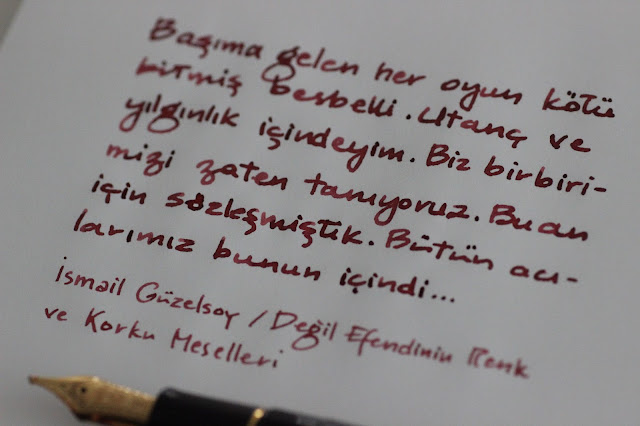 Başıma gelen her oyun kötü
bitmiş besbelli. Utanç ve
yılgınlık içindeyim. Biz birbiri-
mizi zaten tanıyoruz. Bu an
için sözleşmiştik. Bütün acı-
larımız bunun içindi...
İsmail Güzelsoy / Değil Efendinin Renk
ve Korku Meselleri